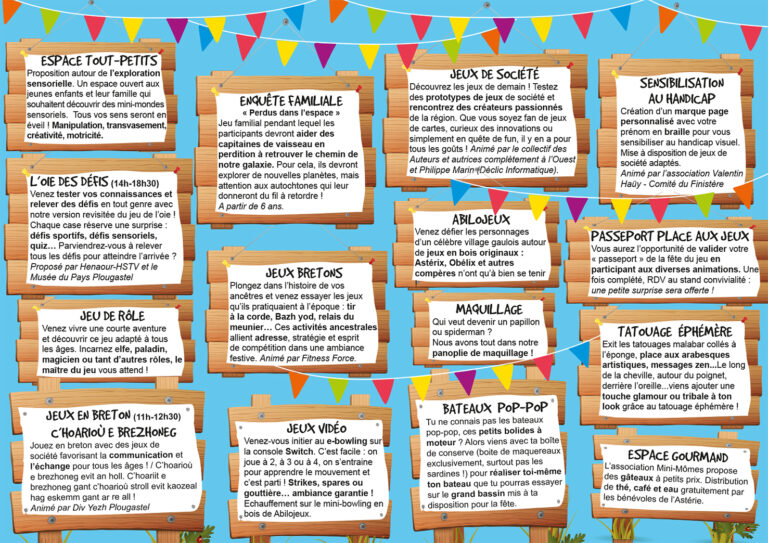 ESPACE TOUT-PETITS
Proposition autour de l'exploration
sensorielle. Un espace ouvert aux
jeunes enfants et leur famille qui
souhaitent découvrir des mini-mondes
sensoriels. Tous vos sens seront en
éveil ! Manipulation, transvasement,
créativité, motricité.
L'OIE DES DÉFIS (14h-18h30)
Venez tester vos connaissances et
relever des défis en tout genre avec
notre version revisitée du jeu de l'oie !
Chaque case réserve une surprise :
défis sportifs, défis sensoriels,
quiz… Parviendrez-vous à relever
tous les défis pour atteindre l'arrivée ?
Proposé par Henaour-HSTV et le
Musée du Pays Plougastel
JEU DE RÔLE
Venez vivre une courte aventure
et découvrir ce jeu adapté à tous
les âges. Incarnez elfe, paladin,
magicien ou tant d'autres rôles, le
maître du jeu vous attend !
JEUX EN BRETON (11h-12h30)
C'HOARIOÙ E BREZHONEG
Jouez en breton avec des jeux de
société favorisant la communication et
l'échange pour tous les âges ! / C'hoarioù
e brezhoneg evit an holl. C'hoariit e
brezhoneg gant c'hoarioù stroll evit kaozeal
hag eskemm gant ar re all !
Animé par Div Yezh Plougastel
ENQUÊTE FAMILIALE
« Perdus dans l'espace »
Jeu familial pendant lequel les
participants devront aider des
capitaines de vaisseau en
perdition à retrouver le chemin de
notre galaxie. Pour cela, ils devront
explorer de nouvelles planètes, mais
attention aux autochtones qui leur
donneront du fil à retordre !
A partir de 6 ans.
JEUX BRETONS
Plongez dans l'histoire de vos
ancêtres et venez essayer les jeux
qu'ils pratiquaient à l'époque : tir
à la corde, Bazh yod, relais du
meunier… Ces activités ancestrales
allient adresse, stratégie et esprit
de compétition dans une ambiance
festive. Animé par Fitness Force.
JEUX VIDÉO
Venez-vous initier au e-bowling sur
la console Switch. C'est facile : on
joue à 2, à 3 ou à 4, on s'entraine
pour apprendre le mouvement et
c'est parti ! Strikes, spares ou
gouttière… ambiance garantie !
Echauffement sur le mini-bowling en
bois de Abilojeux.
JEUX DE SOCIÉTÉ
Découvrez les jeux de demain ! Testez
des prototypes de jeux de société et
rencontrez des créateurs passionnés
de la région. Que vous soyez fan de jeux
de cartes, curieux des innovations ou
simplement en quête de fun, il y en a pour
tous les goûts ! Animé par le collectif des
Auteurs et autrices complètement à l'Ouest
et Philippe Marin (Déclic Informatique).
ABILOJEUX
Venez défier les personnages
d'un célèbre village gaulois autour
de jeux en bois originaux :
Astérix, Obélix et autres
compères n'ont qu'à bien se tenir
MAQUILLAGE
Qui veut devenir un papillon
ou spiderman ?
Nous avons tout dans notre
panoplie de maquillage !
BATEAUX POP-POP
Tu ne connais pas les bateaux
pop-pop, ces petits bolides à
moteur ? Alors viens avec ta boîte
de conserve (boite de maquereaux
exclusivement, surtout pas les
sardines !) pour réaliser toi-même
ton bateau que tu pourras essayer
sur le grand bassin mis à ta
disposition pour la fête.
SENSIBILISATION
AU HANDICAP
Création d'un marque page
personnalisé avec votre
prénom en braille pour vous
sensibiliser au handicap visuel.
Mise à disposition de jeux de
société adaptés.
Animé par l'association Valentin
Haüy - Comité du Finistère
PASSEPORT PLACE AUX JEUX
Vous aurez l'opportunité de valider votre
« passeport » de la fête du jeu en
participant aux diverses animations. Une
fois complété, RDV au stand convivialité :
une petite surprise sera offerte !
TATOUAGE ÉPHÉMÈRE
Exit les tatouages malabar collés à
l'éponge, place aux arabesques
artistiques, messages zen...Le long
de la cheville, autour du poignet,
derrière l'oreille...viens ajouter une
touche glamour ou tribale à ton
look grâce au tatouage éphémère !
ESPACE GOURMAND
L'association Mini-Mômes propose
des gâteaux à petits prix. Distribution
de thé, café et eau gratuitement par
les bénévoles de l'Astérie.